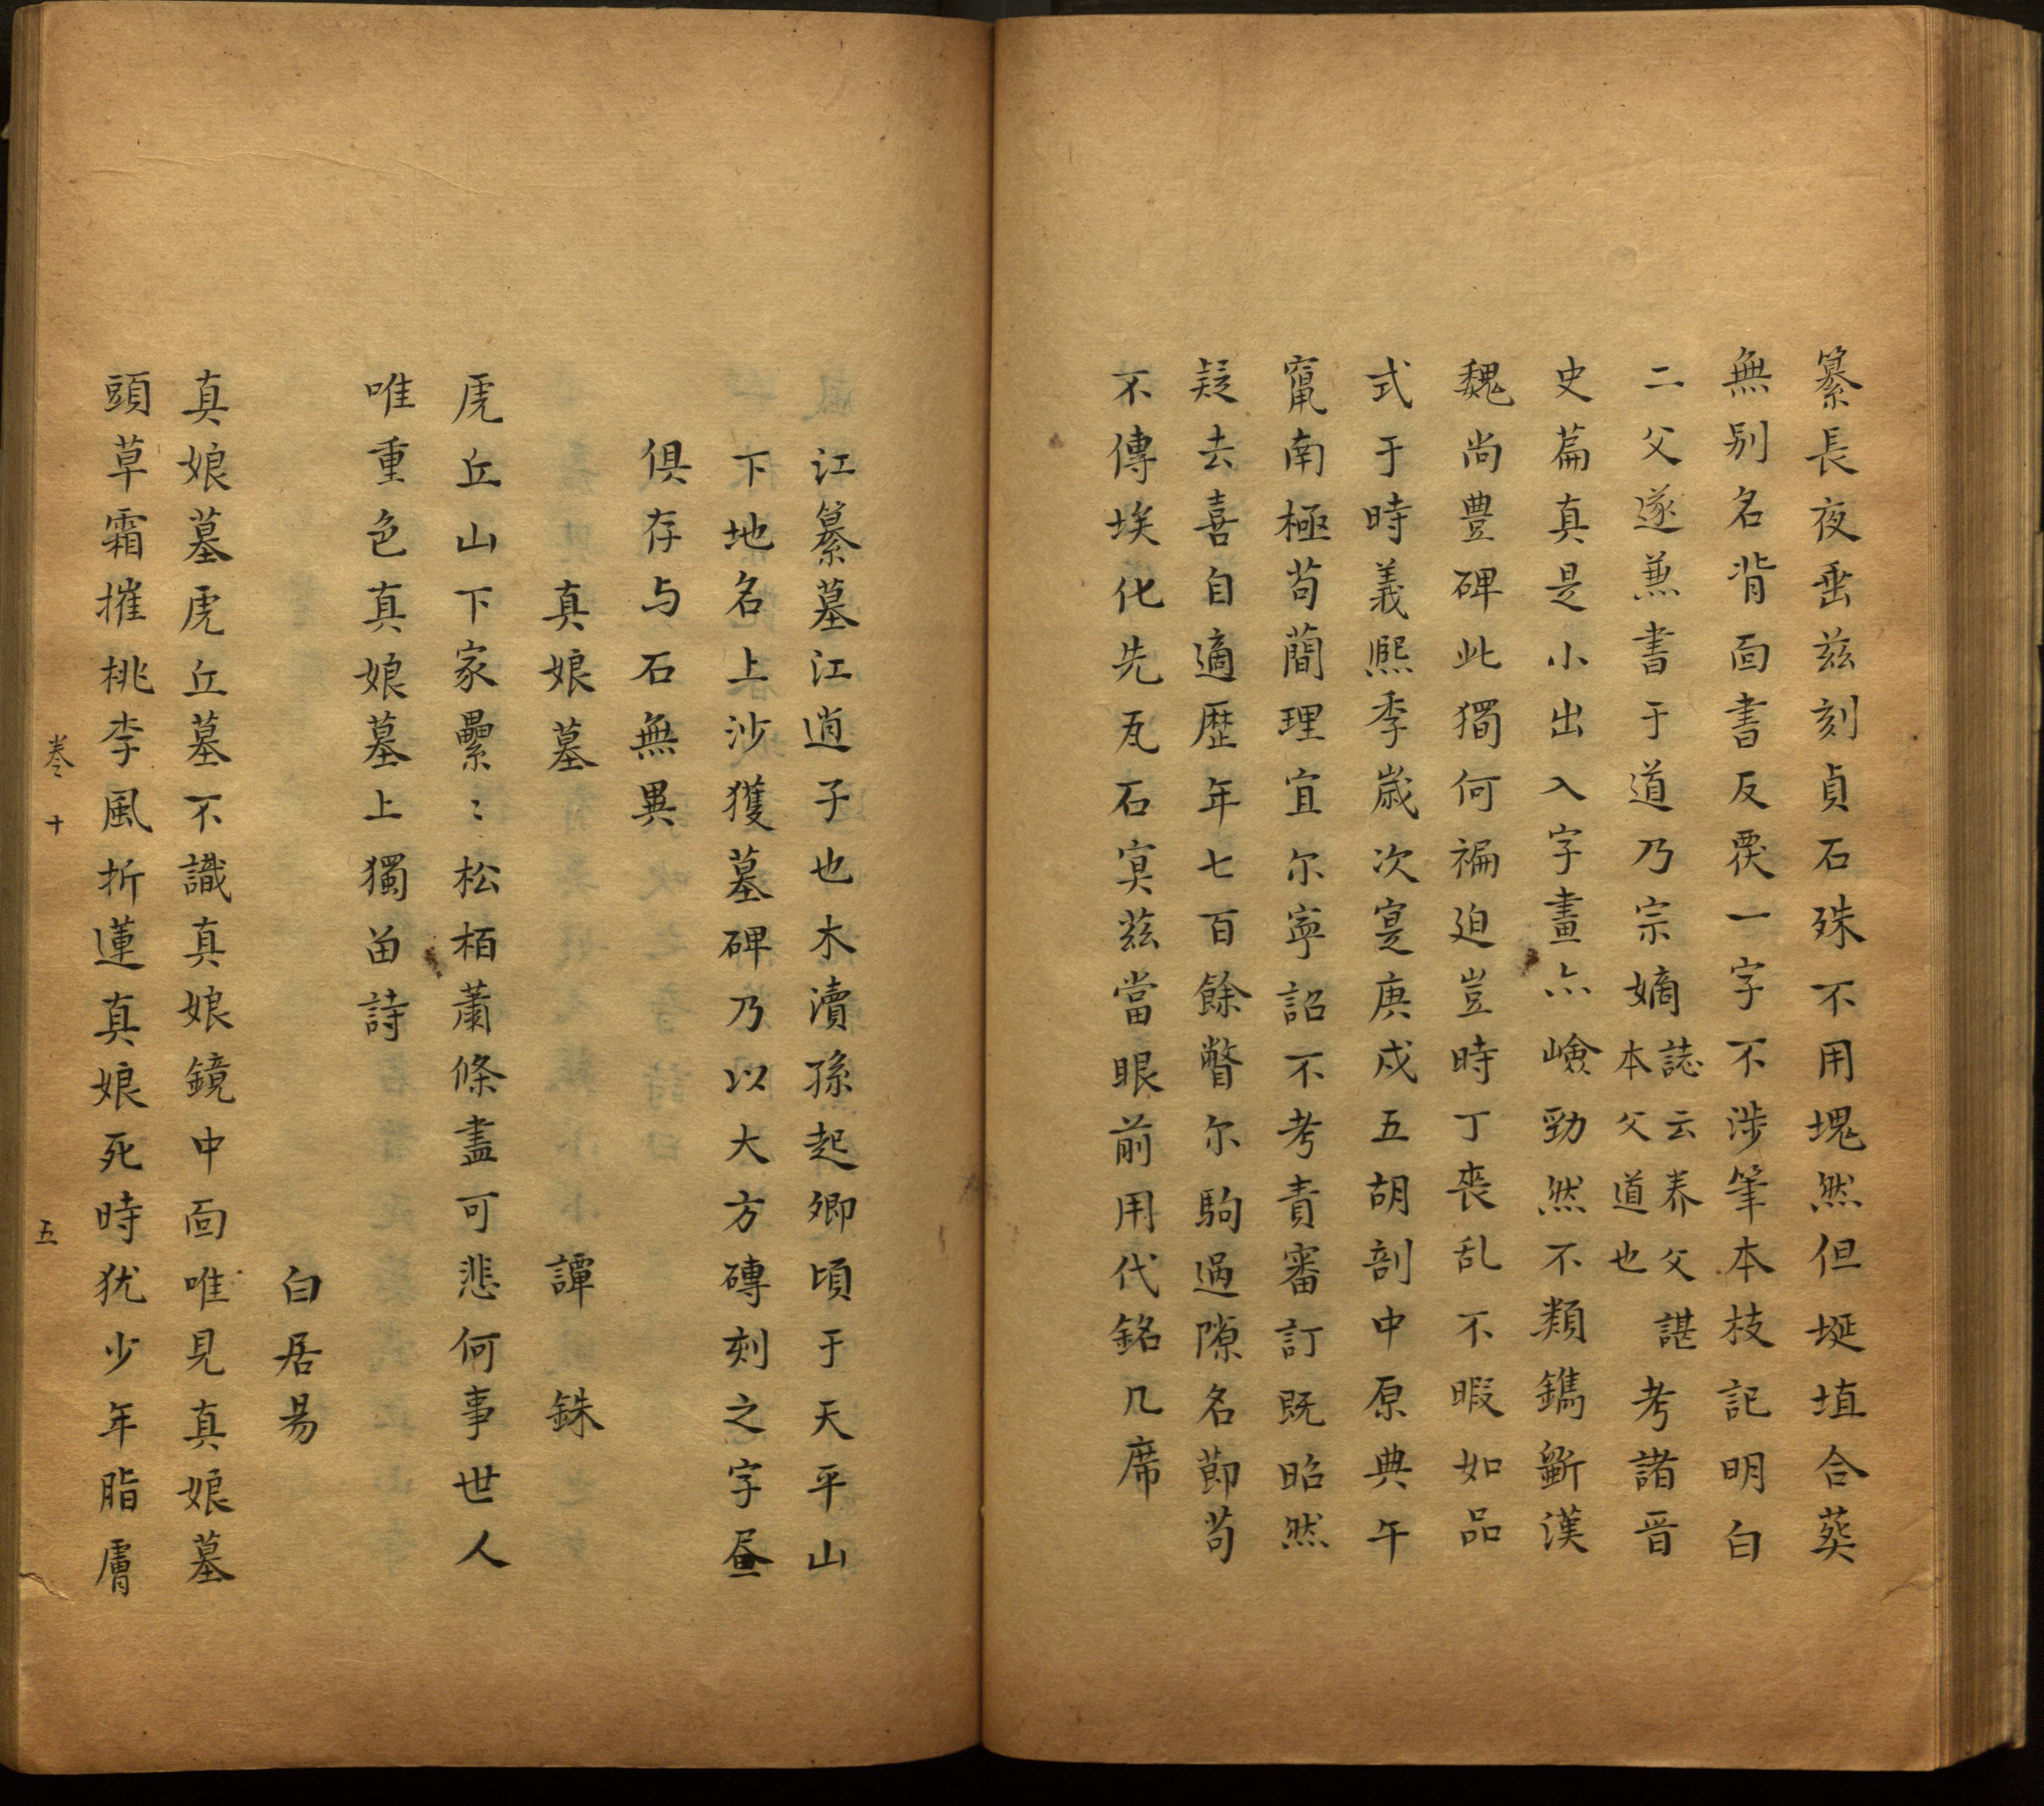 纂長夜臺茲刻貞石殊不用塊然但埏埴合葬
無别名背面書反覆一字不涉筆本枝記明白
二父遂兼書于道乃宗嫡誌云养父諶本父道也考諸晋
史篇真是小出入字畫亦嶮勁然不類鐫斵漢
魏尚豊碑此獨何褊迫豈時丁喪乱不暇如品
式于時義熙季嵗次寔庚戍五胡剖中原典午
竄南極苟蕳理宜尔寧詔不考責審訂既昭然
疑去喜自適歴年七百餘瞥尔駒過隙名節苟
不傳埃化先瓦石寞茲當眼前用代銘几席
江纂墓江逌子也木瀆孫起卿頃于天平山
下地名上沙獲墓碑乃以大方磚刻之字昼
俱存与石無異
真娘墓 譚銖
虎丘山下冢纍：松栢蕭條盡可悲何事世人
唯重色真娘墓上獨畄詩
白居易
真娘墓虎丘墓不識真娘鏡中面唯見真娘墓
頭草霜摧桃李風折蓮真娘死時犹少年脂膚
卷十 五